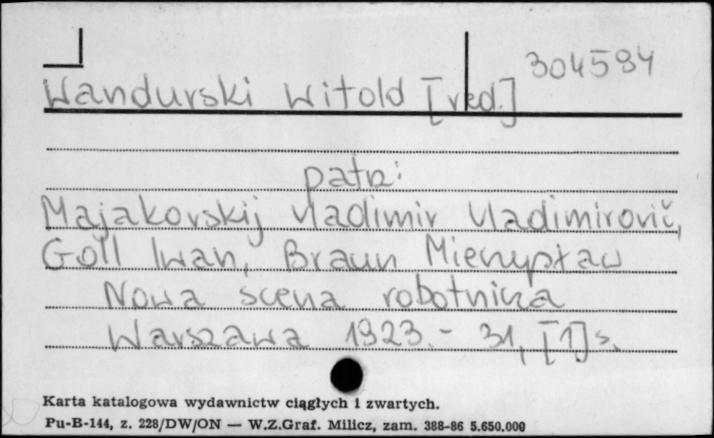 304594
Wandurski Witold [red.]
patrz:
Majakovskij Vladimir Vladimirovič,
Goll Iwan, Braun Mieczysław
Nowa scena robotnicza
Warszawa 1923. - 31, [1] s.
Karta katalogowa wydawnictw ciągłych i zwartych.
Pu-B-144, z. 228/DW/ON — W.Z.Graf. Milicz, zam. 388-86 5.650.000